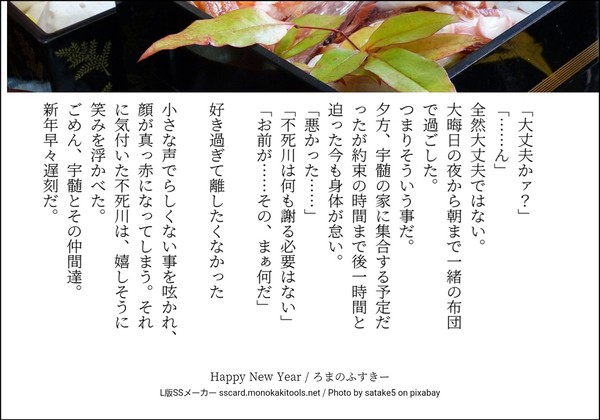 「大丈夫かァ？」
「……ん」
全然大丈夫ではない。
大晦日の夜から朝まで一緒の布団
で過ごした。
つまりそういう事だ。
夕方、宇髄の家に集合する予定だ
ったが約束の時間まで後一時間と
迫った今も身体が怠い。
「悪かった……」
「不死川は何も謝る必要はない」
「お前が……その、まぁ何だ」
好き過ぎて離したくなかった
小さな声でらしくない事を呟かれ、
顔が真っ赤になってしまう。それ
に気付いた不死川は、嬉しそうに
笑みを浮かべた。
ごめん、宇髄とその仲間達。
新年早々遅刻だ。
Happy New Year / ろまのふすきー
L版SSメーカー sscard.monokakitools.net / Photo by satake5 on pixabay